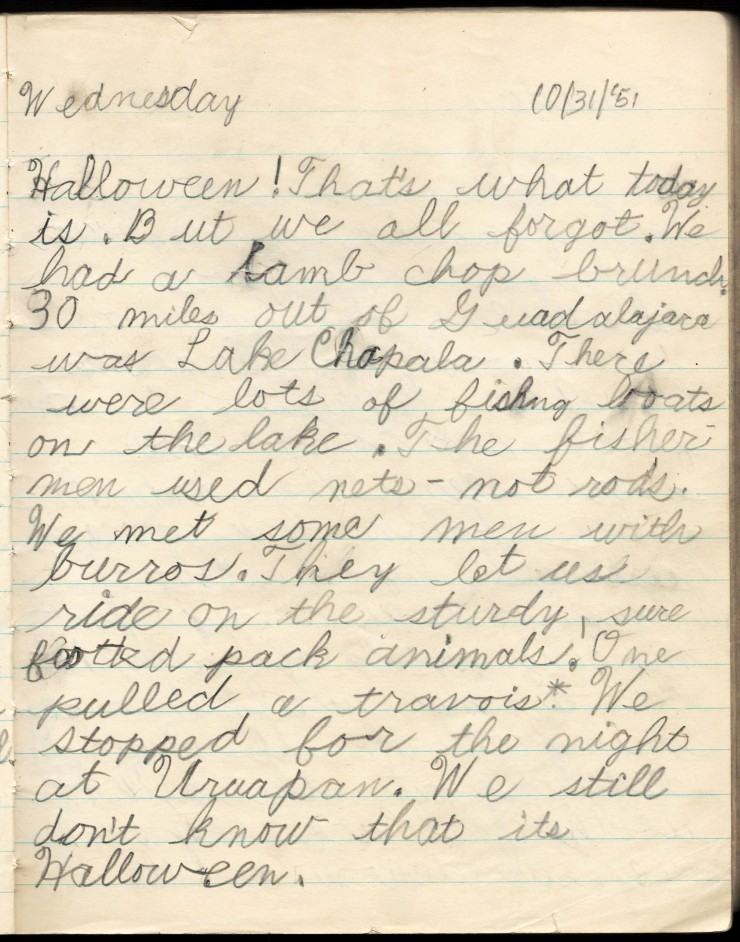 Wednesday 10/31/'51
Halloween! That's what today
is. But we all forgot. We
had a lamb chop brunch.
30 miles out of Guadalajara
was Lake Chapala. There
were lots of fishng boats
on the lake. The fisher-
men used nets - not rods.
We met some men with
burros. They let us
ride on the sturdy, sure
footed pack animals! One
pulled a travois*. We
stopped for the night
at Uruapan. We still
don't know that its
Halloween.